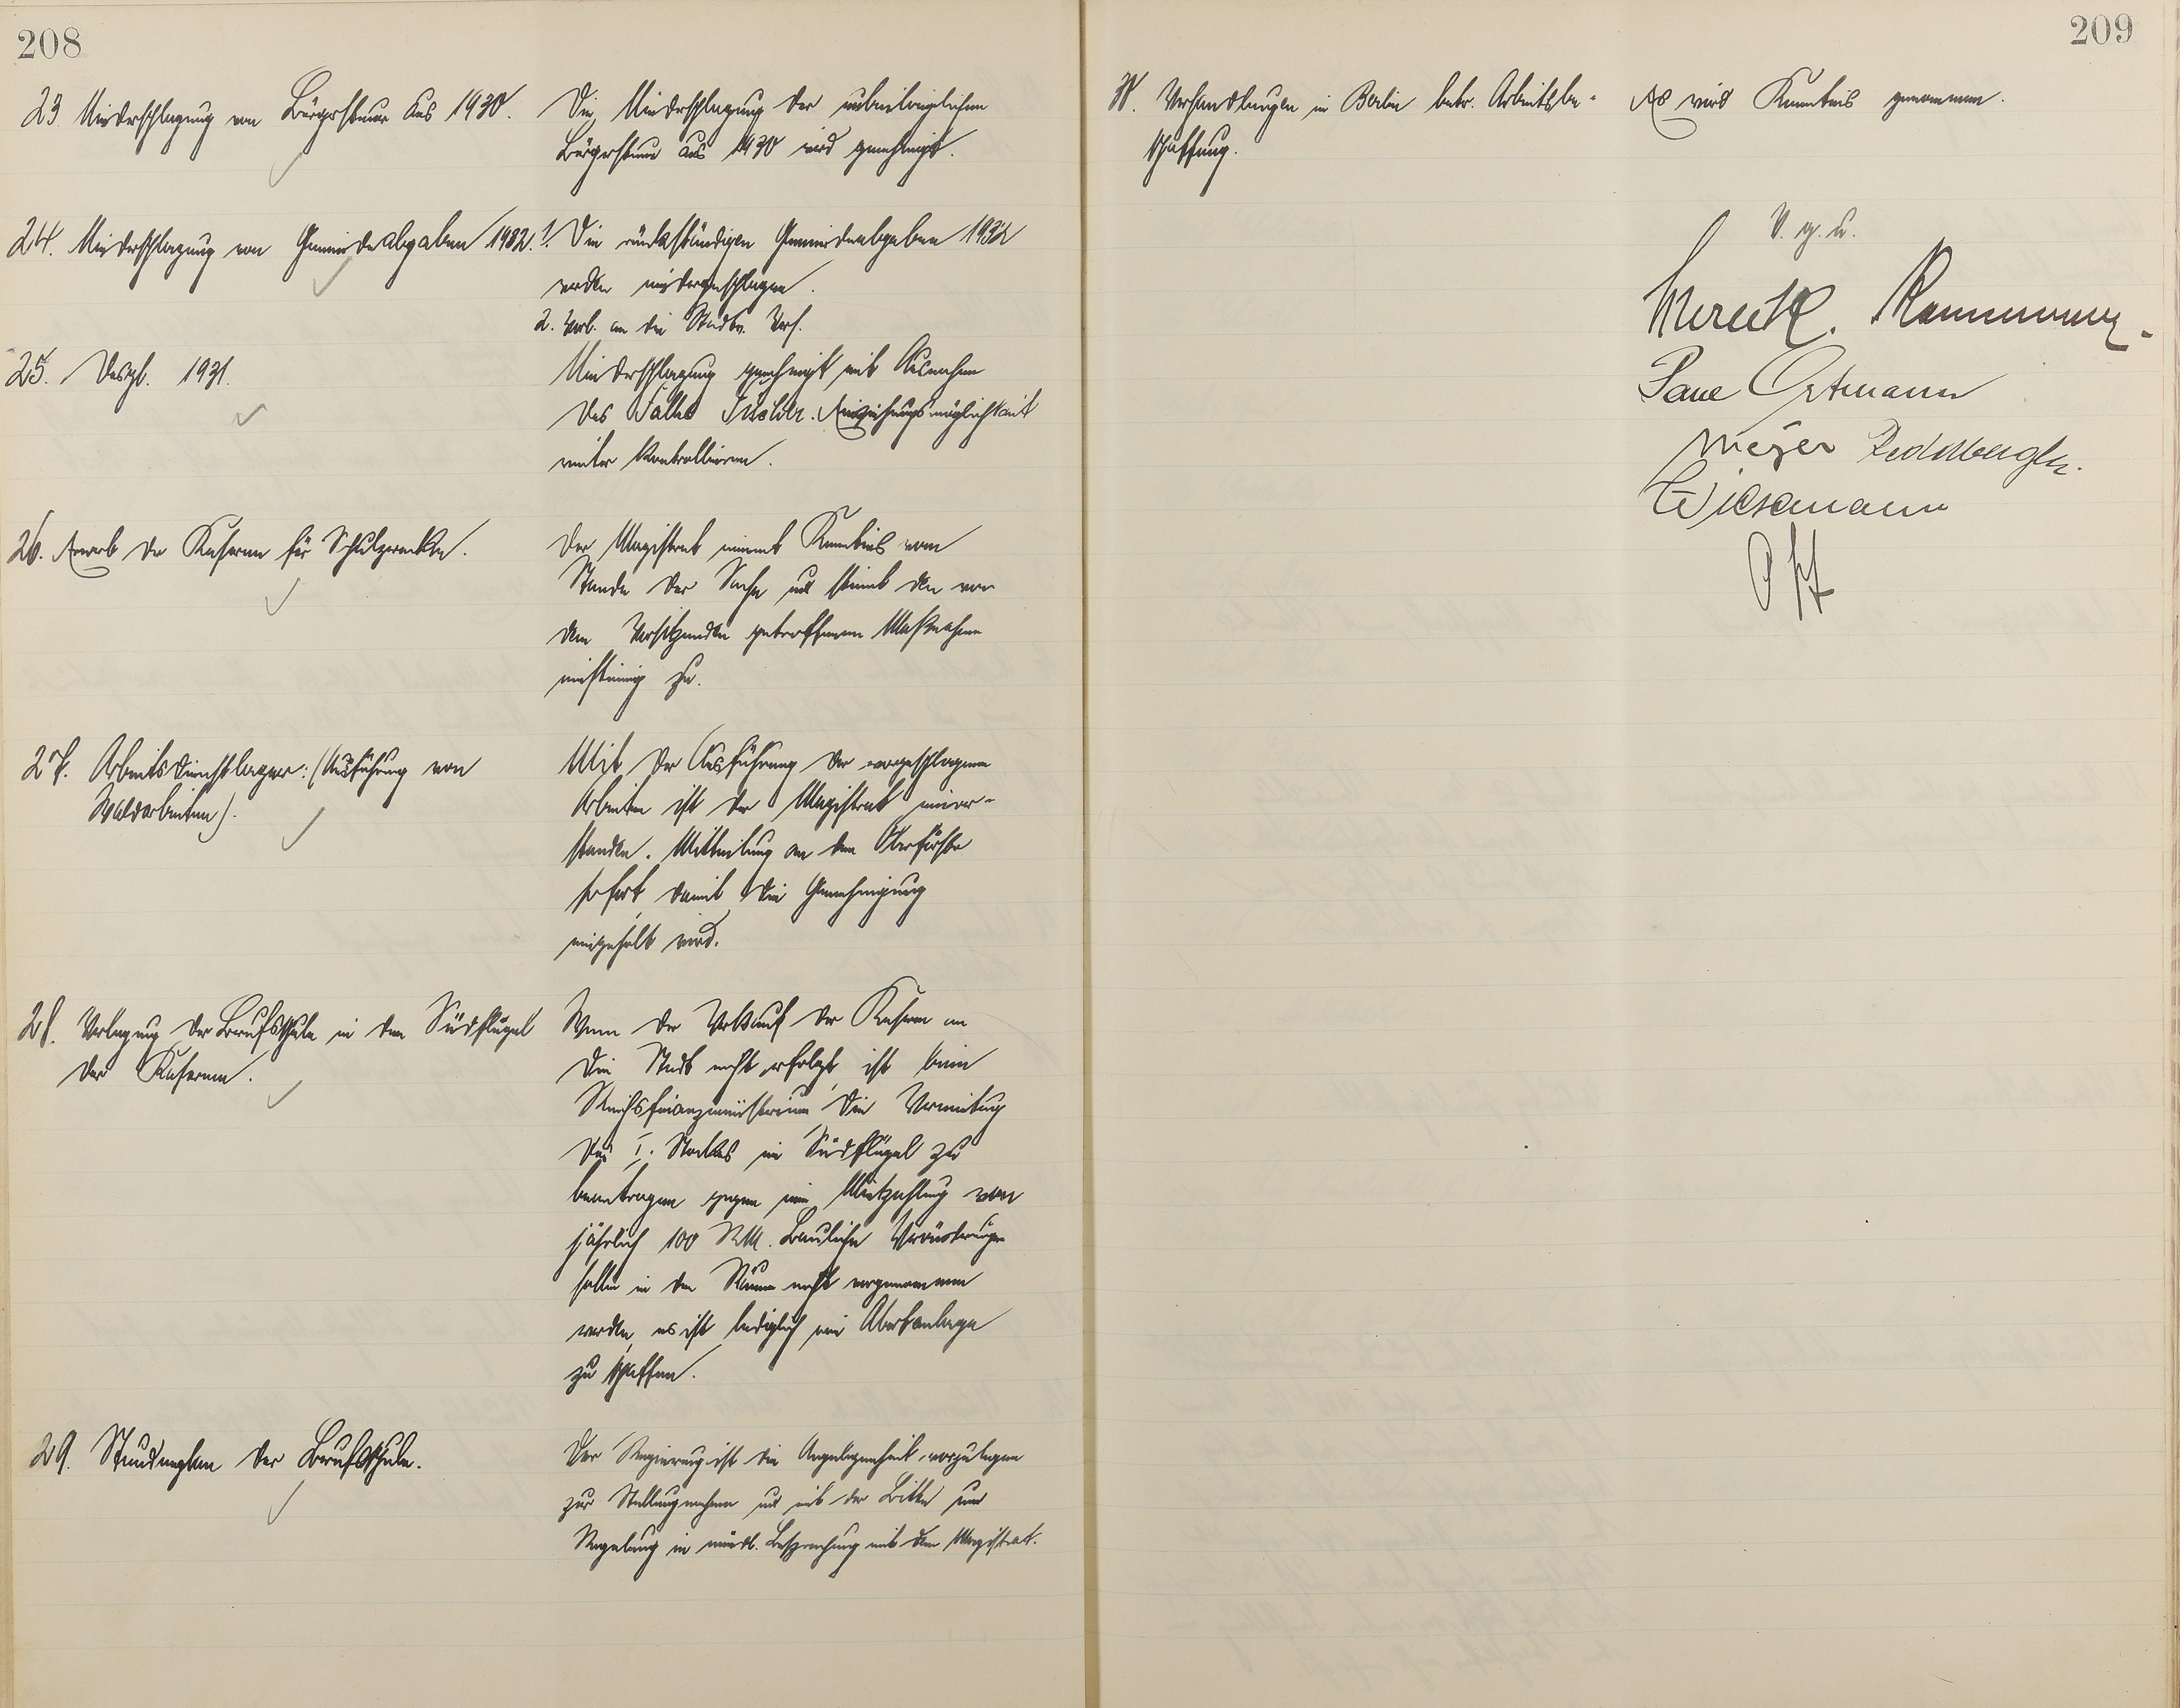 208
23. Niederschlagung von Bürgersteuer aus 1930.
Die Niederschlagung der unbeitreiblichen
Bürgersteuer aus 1930 wird genehmigt.
24. Niederschlagung von Gemeindeabgaben 1932.
1. Die rückständigen Gemeindeabgaben 1932
werden niedergeschlagen.
2. Vorl. an die Stadtv. Vers.
25. Desgl. 1931.
Niederschlagung genehmigt mit Ausnahme
des Falles . Einziehungsmöglichkeit
weiter kontrollieren.
26. Erwerb der Kaserne für Schulzwecke.
Der Magistrat nimmt Kenntnis vom
Stande der Sache und stimmt den von
dem Vorsitzenden getroffenen Maßnahmen
einstimmig zu.
27. Arbeitsdienstlager: (Ausführung von
Waldarbeiten).
Mit der Ausführung der vorgeschlagenen
Arbeiten ist der Magistrat einver-
standen. Mitteilung an den Oberförster
sofort, damit die Genehmigung
eingeholt wird.
28. Verlegung der Berufsschule in den Südflügel
der Kaserne.
Wenn der Verkauf der Kaserne an
die Stadt nicht erfolgt, ist beim
Reichsfinanzministerium die Vermietung
des I. Stockes im Südflügel zu
beantragen gegen eine Mietzahlung von
jährlich 100 RM. Bauliche Veränderungen
sollen in den Räumen nicht vorgenommen
werden, es ist lediglich eine Abortanlage
zu schaffen.
29. Stundenplan der Berufsschule.
Der Regierung ist die Angelegenheit vorzulegen
zur Stellungnahme und mit der Bitte um
Regelung in mündl. Besprechung mit dem Magistrat.
209
30. Verhandlungen in Berlin betr. Arbeitsbe-
schaffung.
Es wird Kenntnis genommen.
V. g. u.
Ortmann
Meyer
Wiesemann